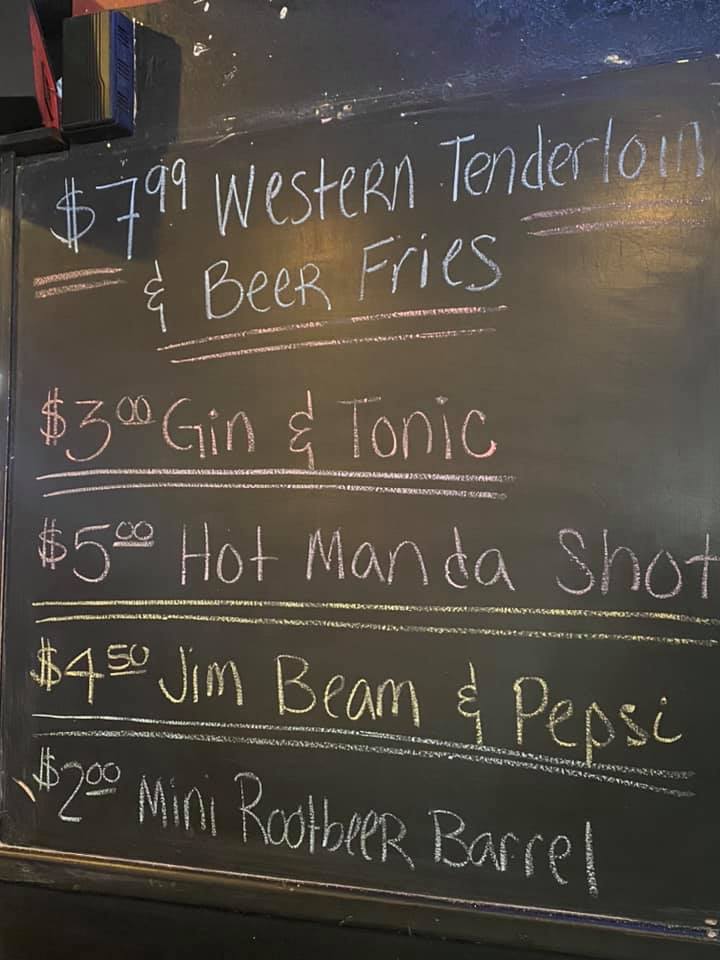 $7.99 Western Tenderloin
& Beer Fries
$3.00 Gin & Tonic
$5.00 Hot Manda Shot
$4.50 Jim Beam & Pepsi
$2.00 Mini Rootbeer Barrel